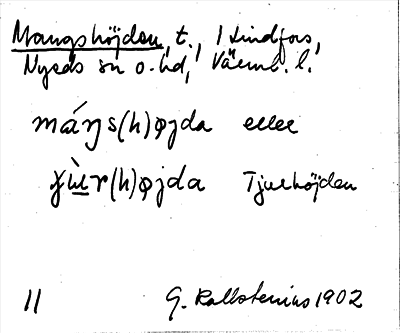 Mangshöjden, t., I Lindfors,
Nyeds sn o. hd, Värml. l.
máŋs(h)øjda eller
ɣùr(h)øjda Tjurhöjden
11 G. Kallstenius 1902